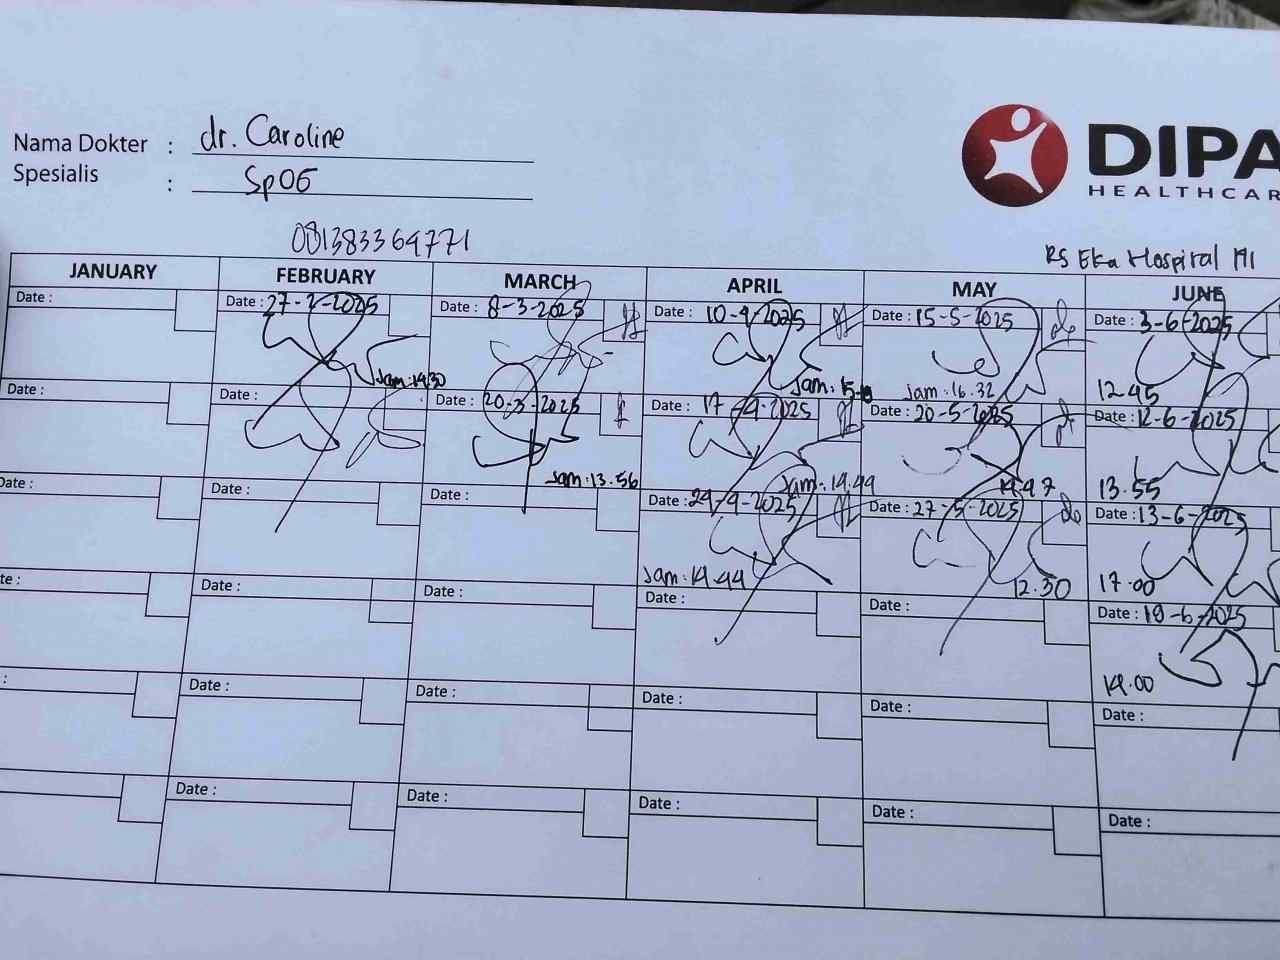 Nama Dokter : dr. Caroline
Spesialis : SpOG
081383369771
DIPA
HEALTHCAR
RS Eka Hospital
JANUARY FEBRUARY MARCH APRIL MAY JUNE
Date : Date : 27-2-2025 Date : 8-3-2025 Date : 10-4-2025 Date : 15-5-2025 Date : 3-6-2025
Jam: 14.30 Jam: Jam: 16.32 12.45
Date : Date : Date : 20-3-2025 Date : 17-4-2025 Date : 20-5-2025 Date : 12-6-2025
Jam: 13.56 Jam: 14.49 14.47 13.55
Date : Date : Date : Date : 24-4-2025 Date : 27-5-2025 Date : 13-6-2025
Jam: 14.44 12.30 17.00
te : Date : Date : Date : Date : Date : 19-6-2025
14.00
: Date : Date : Date : Date : Date :
Date : Date : Date : Date : Date :